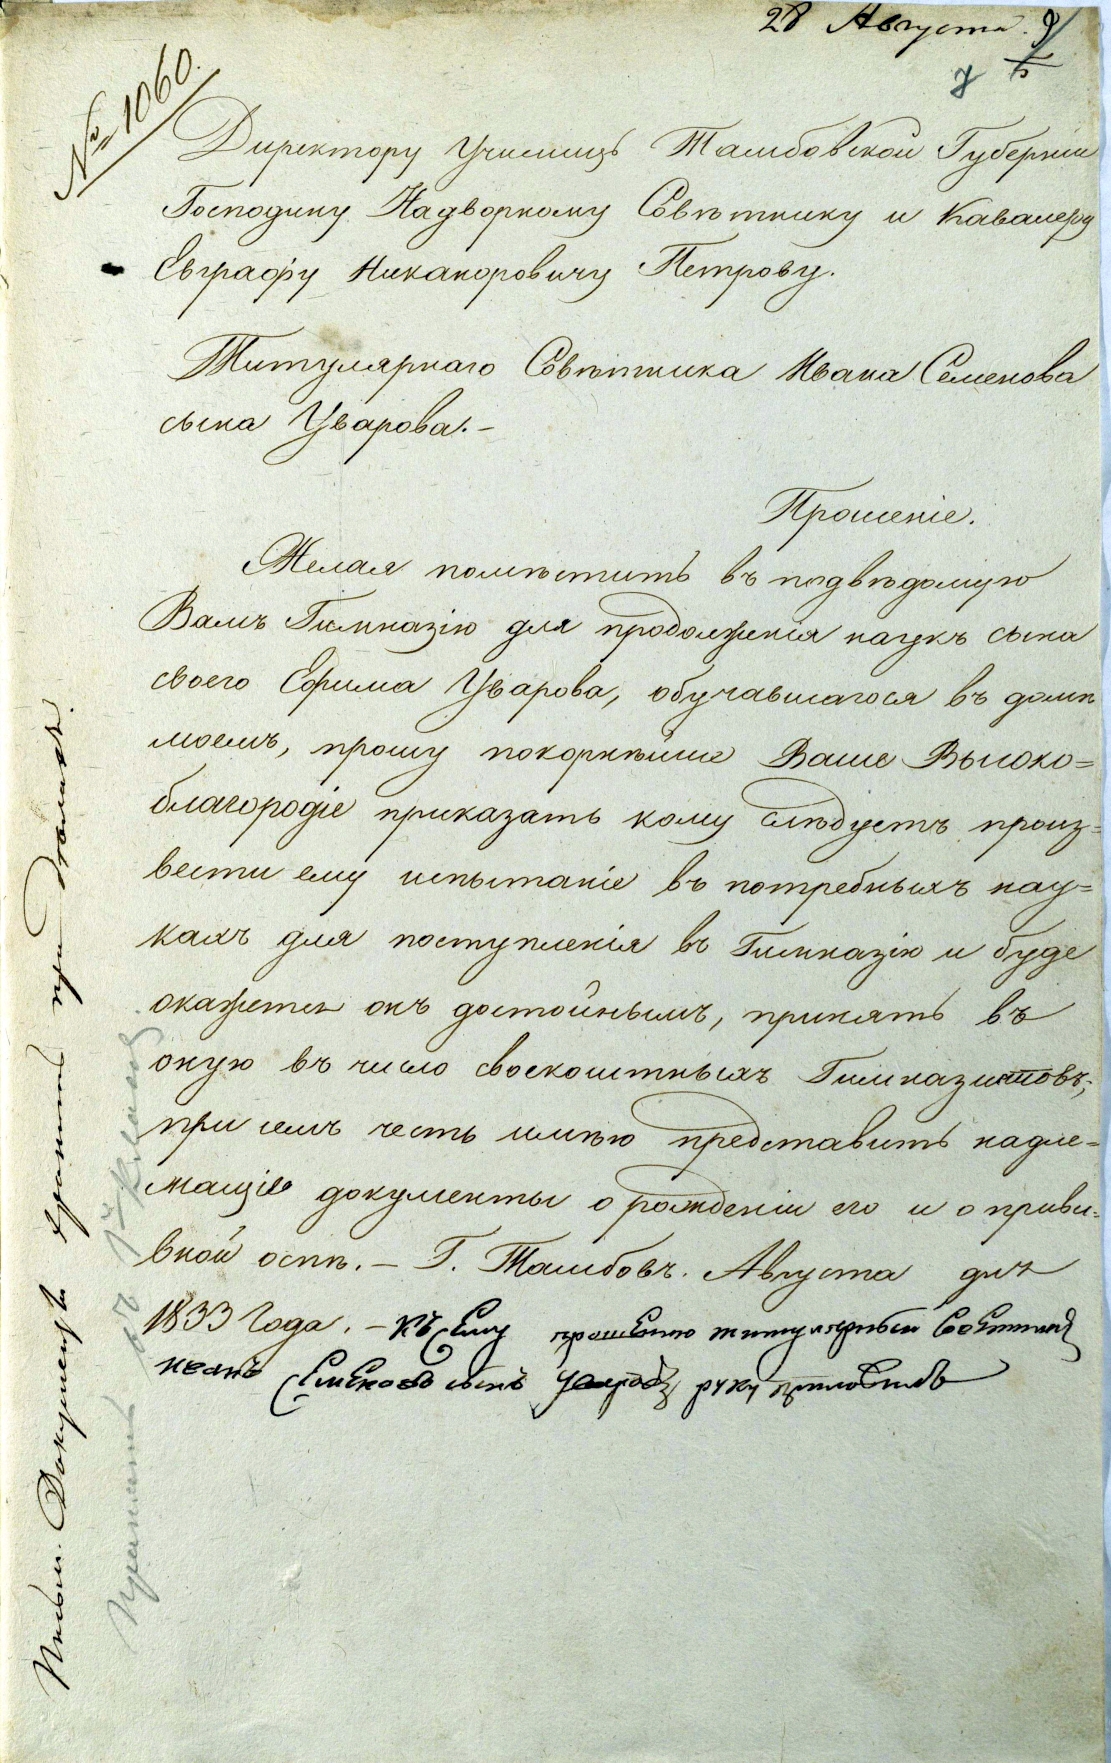 28 Августа.
№ 1060.
Директору Училищъ Тамбовской Губерніи
Господину Надворному Совѣтнику и Кавалеру
Евграфу Никаноровичу Петрову.
Титулярнаго Совѣтника Ивана Семенова
сына Уварова.-
Прошеніе.
Желая помѣстить въ подвѣдомую
Вамъ Гимназію для продолженія наукъ сына
своего Ефима Уварова, обучавшагося въ домѣ
моемъ, прошу покорнѣйше Ваше Высоко=
благородіе приказать кому слѣдуетъ произ=
вести ему испытаніе въ потребныхъ нау=
кахъ для поступленія въ Гимназію и буде
окажется онъ достойнымъ, принять въ
оную въ число своекоштныхъ Гимназистовъ;
при семъ честь имѣю представить надле=
жащіе документы о рожденіи его и о приви=
вной оспѣ. - Г. Тамбовъ. Августа дня
1833 Года. - Къ сему прошению титулярный Советникъ
Иванъ Семеновъ сынъ Уваровъ руку приложилъ
Документы хранить при
Принять въ 1й классъ.